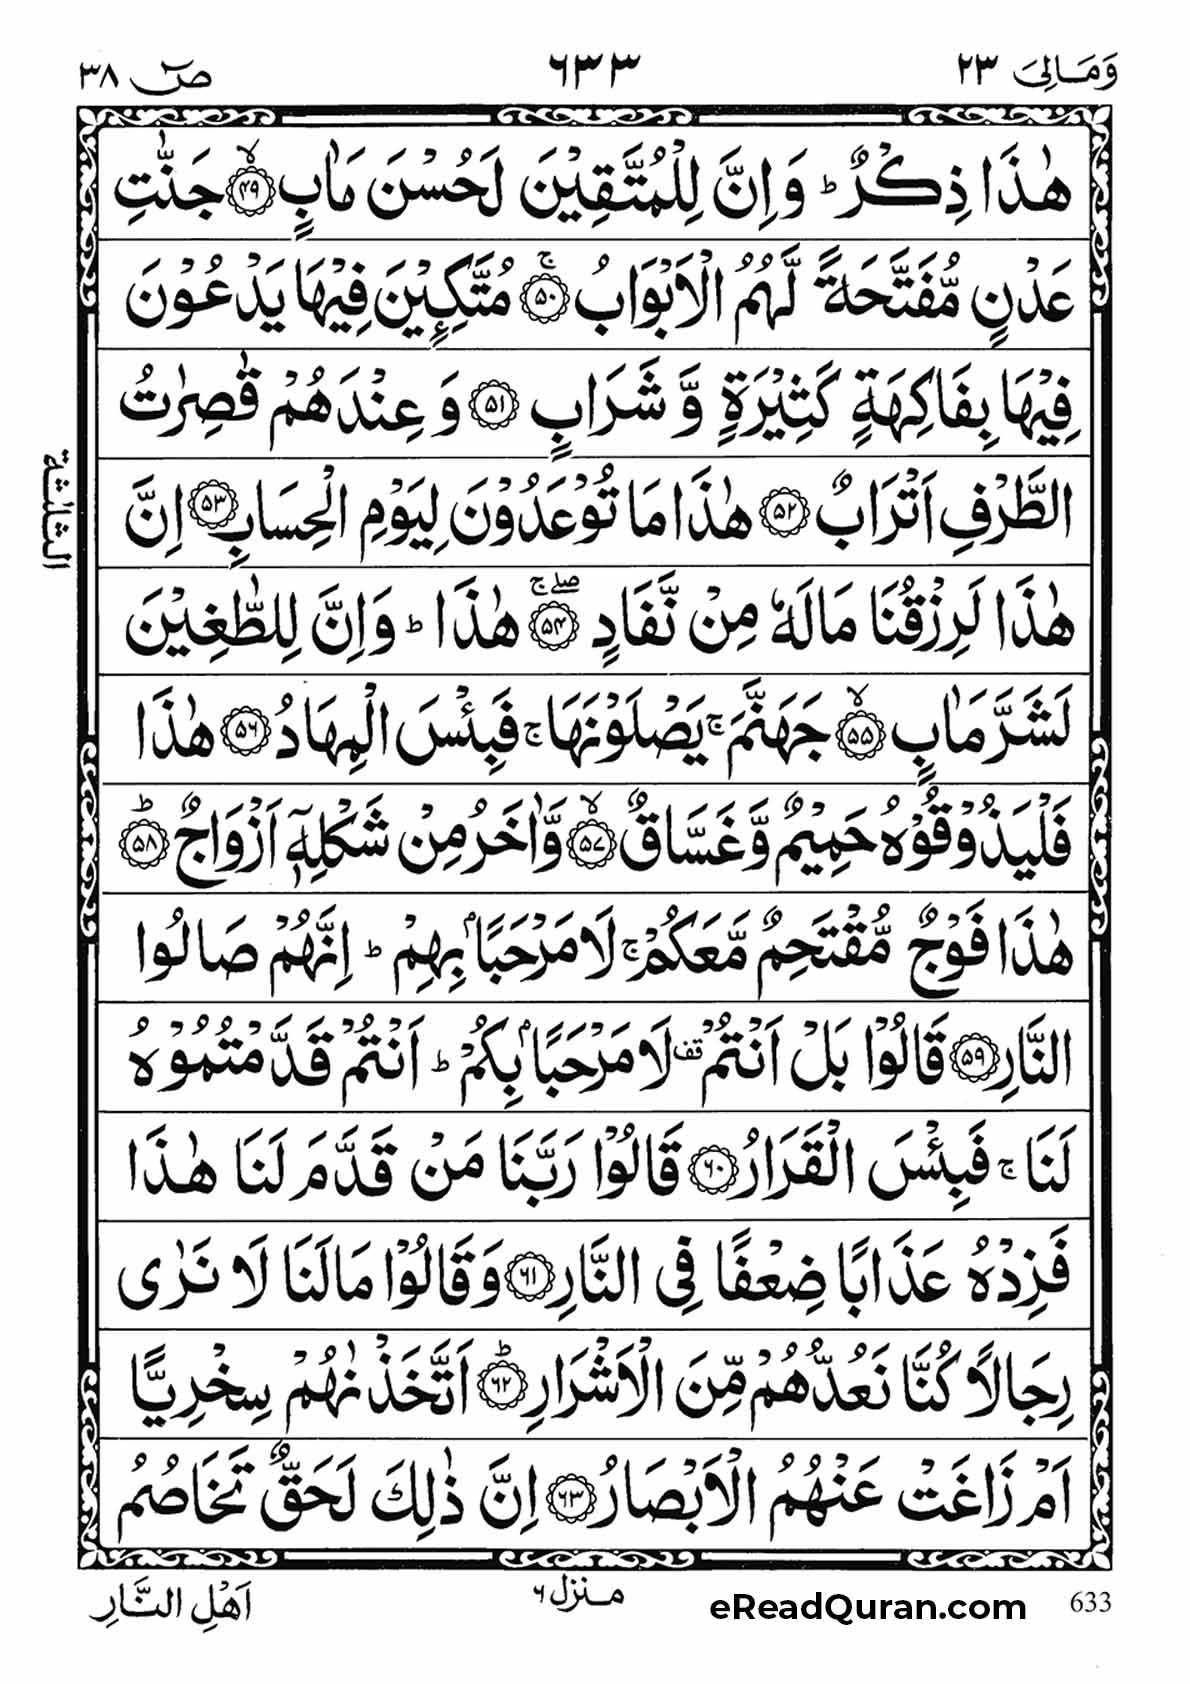 وَمَالِیَ ٢٣
٦٣٣
صٓ ٣٨
هٰذَا ذِكْرٌ ؕ وَاِنَّ لِلْمُتَّقِيْنَ لَحُسْنَ مَاٰبٍ ۙ﴿۴۹﴾ جَنّٰتِ
عَدْنٍ مُّفَتَّحَةً لَّهُمُ الْاَبْوَابُ ۚ﴿۵۰﴾ مُتَّكِـِٕيْنَ فِيْهَا يَدْعُوْنَ
فِيْهَا بِفَاكِهَةٍ كَثِيْرَةٍ وَّ شَرَابٍ ﴿۵۱﴾ وَ عِنْدَهُمْ قٰصِرٰتُ
الطَّرْفِ اَتْرَابٌ ﴿۵۲﴾ هٰذَا مَا تُوْعَدُوْنَ لِيَوْمِ الْحِسَابِ ﴿۵۳﴾ اِنَّ
الثلثة
هٰذَا لَرِزْقُنَا مَالَهٗ مِنْ نَّفَادٍ ۚۖ﴿۵۴﴾ هٰذَا ؕ وَاِنَّ لِلطّٰغِيْنَ
لَشَرَّ مَاٰبٍ ۙ﴿۵۵﴾ جَهَنَّمَ ۚ يَصْلَوْنَهَا ۚ فَبِئْسَ الْمِهَادُ ﴿۵۶﴾ هٰذَا
فَلْيَذُوْقُوْهُ حَمِيْمٌ وَّغَسَّاقٌ ۙ﴿۵۷﴾ وَّاٰخَرُ مِنْ شَكْلِهٖۤ اَزْوَاجٌ ؕ﴿۵۸﴾
هٰذَا فَوْجٌ مُّقْتَحِمٌ مَّعَكُمْ ۚ لَا مَرْحَبًۢا بِهِمْ ؕ اِنَّهُمْ صَالُوا
النَّارِ ﴿۵۹﴾ قَالُوْا بَلْ اَنْتُمْ قف لَا مَرْحَبًۢا بِكُمْ ؕ اَنْتُمْ قَدَّمْتُمُوْهُ
لَنَا ۚ فَبِئْسَ الْقَرَارُ ﴿۶۰﴾ قَالُوْا رَبَّنَا مَنْ قَدَّمَ لَنَا هٰذَا
فَزِدْهُ عَذَابًا ضِعْفًا فِي النَّارِ ﴿۶۱﴾ وَقَالُوْا مَالَنَا لَا نَرٰى
رِجَالًا كُنَّا نَعُدُّهُمْ مِّنَ الْاَشْرَارِ ؕ﴿۶۲﴾ اَتَّخَذْنٰهُمْ سِخْرِيًّا
اَمْ زَاغَتْ عَنْهُمُ الْاَبْصَارُ ﴿۶۳﴾ اِنَّ ذٰلِكَ لَحَقٌّ تَخَاصُمُ
اَهْلِ النَّارِ
منزل ۶
eReadQuran.com
633